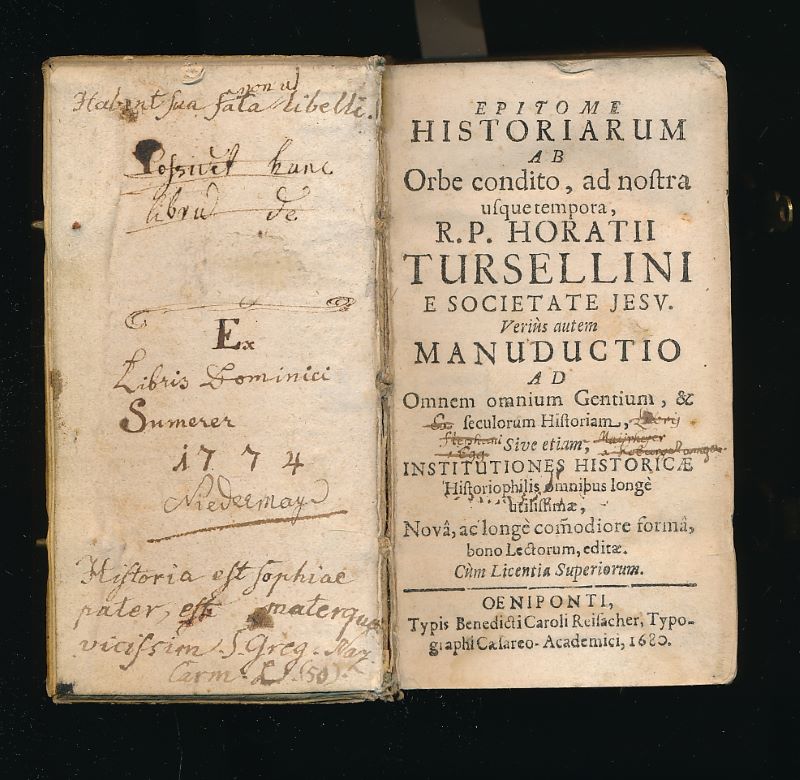 non ul
Habent sua fata libelli.
Possidet hunc
librū de
Ex
Libris Dominici
Sumerer
1774
Niedermayr
Hiſtoria eſt ſophiae
pater, eſt materque
viciſſim S. Greg. Naz
Carm. L. (50).
EPITOME
HISTORIARUM
AB
Orbe condito, ad noſtra
uſque tempora,
R.P. HORATII
TURSELLINI
E SOCIETATE JESV.
Veriùs autem
MANUDUCTIO
AD
Omnem omnium Gentium, &
Ex ſeculorum Hiſtoriam, Libris
Stephani Sive etiam, Mayrhofer
INSTITUTIONES HISTORICÆ
Hiſtoriophilis omnibus longè
utiliſſimæ,
Novâ, ac longè com̄odiore formâ,
bono Lectorum, editæ.
Cùm Licentia Superiorum.
OENIPONTI,
Typis Benedicti Caroli Reiſacher, Typo-
graphi Cæſareo-Academici, 1680.